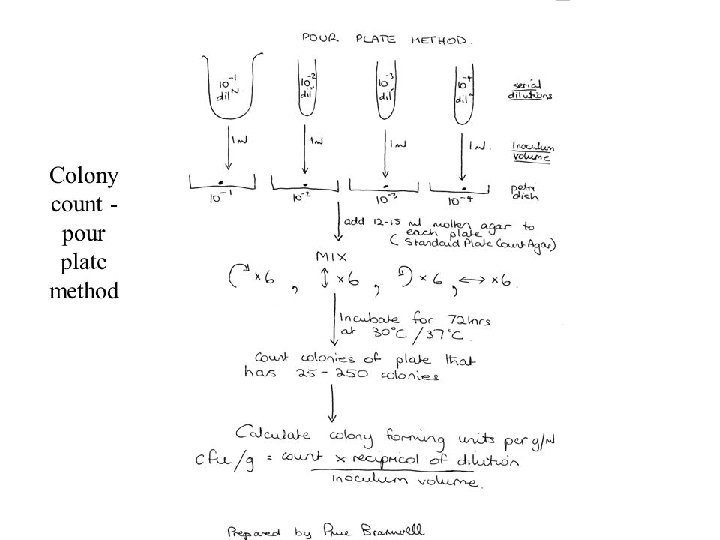 POUR PLATE METHOD.
10⁻¹ 10⁻² 10⁻³ 10⁻⁴ serial
dilⁿ dilⁿ dilⁿ dilⁿ dilutions
1ml 1ml 1ml 1ml. inoculum
volume
10⁻¹ 10⁻² 10⁻³ 10⁻⁴ petri
dish
Colony
count -
pour
plate
method
add 12-15 ml molten agar to
each plate
(Standard Plate Count Agar)
MIX
×6, ↕ ×6, ×6, ↔ ×6.
Incubate for 72hrs
at 30°C/37°C.
Count colonies of plate that
has 25-250 colonies
Calculate colony forming units per g/ml
cfu/g = count x reciprocal of dilution
inoculum volume.
Prepared by Prue Bramwell